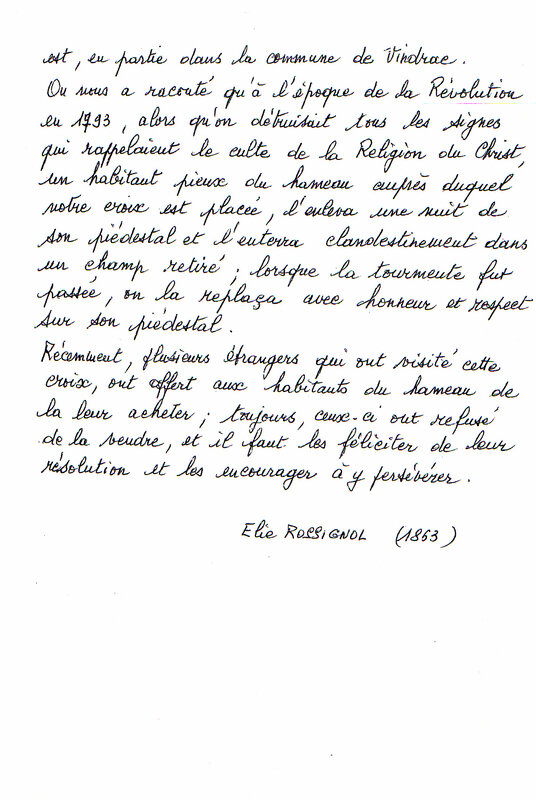 est, en partie dans la commune de Vindrac.
On nous a raconté qu'à l'époque de la Révolution
en 1793, alors qu'on détruisait tous les signes
qui rappelaient le culte de la Religion du Christ,
un habitant pieux du hameau auprès duquel
notre croix est placée, l'enleva une nuit de
son piédestal et l'enterra clandestinement dans
un champ retiré ; lorsque la tourmente fut
passée, on la replaça avec honneur et respect
sur son piédestal.
Récemment, plusieurs étrangers qui ont visité cette
croix, ont offert aux habitants du hameau de
la leur acheter ; toujours, ceux-ci ont refusé
de la vendre, et il faut les féliciter de leur
résolution et les encourager à y persévérer.
Elie ROSSIGNOL (1863)